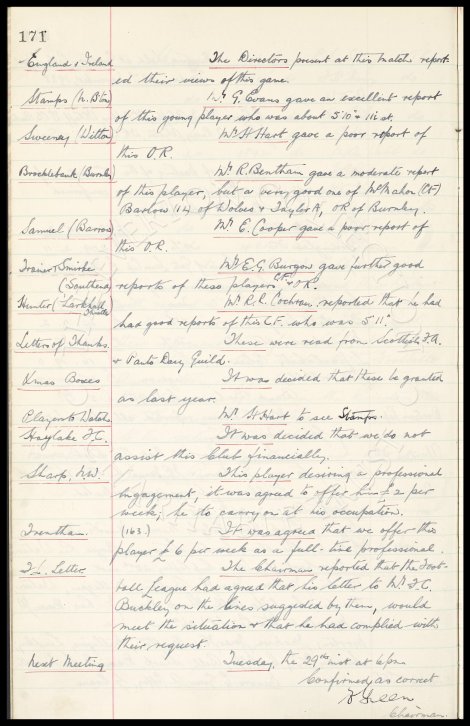 171
England v Ireland The Directors present at this match report-
ed their views of this game.
Stamps (N. B'ton) Mr. G. Evans gave an excellent report
of this young player who was about 5'10" & 11½ st.
Sweeney (Witton) Mr. H. Hart gave a poor report of
this O.R.
Brocklebank (Burnley) Mr. R. Bentham gave a moderate report
of this player, but a very good one of McMahon (CF)
Bartow (1L) of Wolves & Taylor A, OR of Burnley.
Samuel (Barrow) Mr. C. Cooper gave a poor report of
this O.R.
Trainor & Smirke Mr. E.G. Burgon gave further good
(Southend) reports of these players C.F. & O.R.
Hunter (Larkhall Mr. R.R. Cochran, reported that he had
Thistle)
had good reports of this C.F. who was 5'11".
Letters of Thanks. These were read from Scottish F.A.
& Panto Day Guild.
Xmas Boxes It was decided that these be granted
as last year.
Players to Watch. Mr. H. Hart to see Stamps.
Hoylake F.C. It was decided that we do not
assist this Club financially.
Sharp, N.W. This player desiring a professional
engagement, it was agreed to offer him £2 per
week, he to carry on at his occupation.
Trentham. (163.) It was agreed that we offer this
player £6 per week as a full-time professional.
F.L. Letter The Chairman reported that the Foot-
ball League had agreed that his letter to Mr. F.C.
Buckley on the lines suggested by them, would
meet the situation & that he had complied with
their request.
Next Meeting Tuesday, the 29th inst at 6 pm
Confirmed as correct
Green
Chairman.